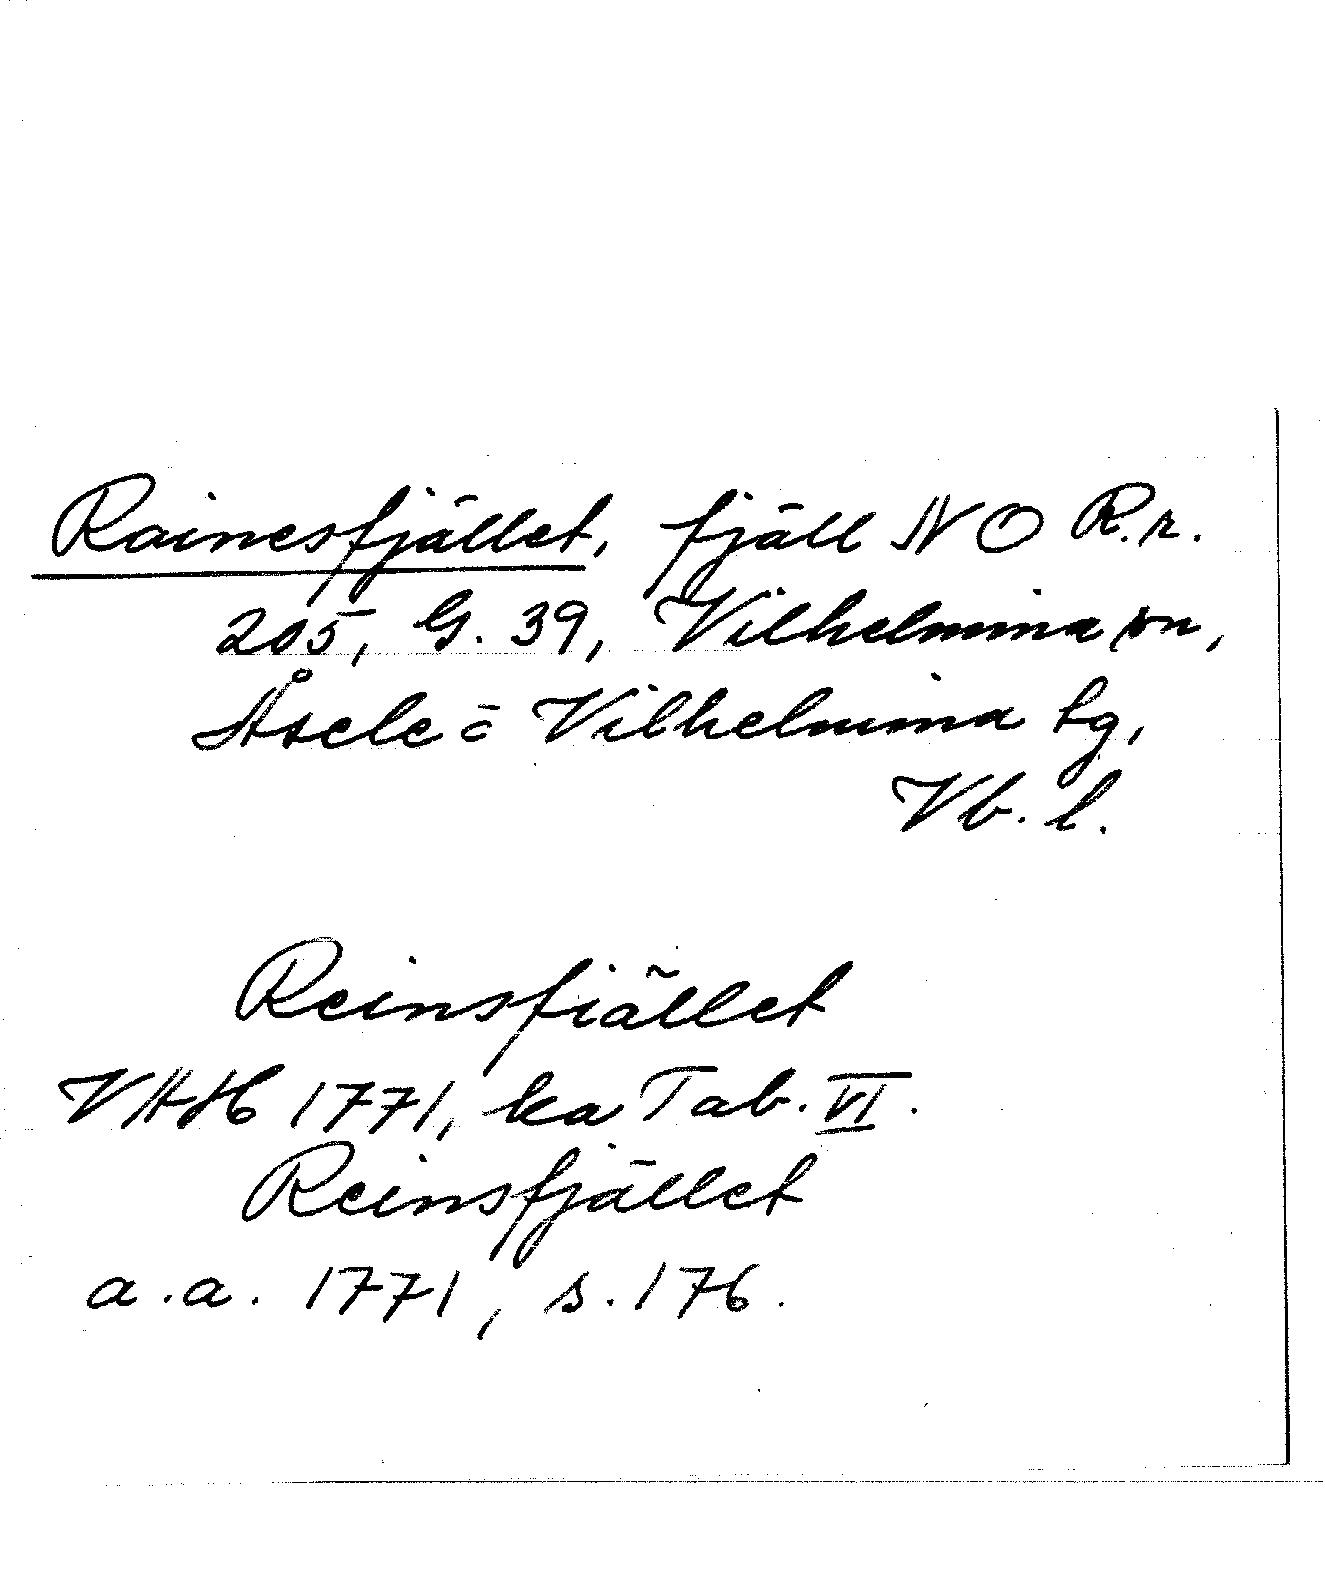 Rainesfjället, fjäll NO R.r.
205, G. 39, Vilhelmina sn,
Åsele o Vilhelmina tg,
Vb. l.
Reinsfiället
VHH 1771, ka Tab. VI.
Reinsfjället
a.a. 1771, s. 176.